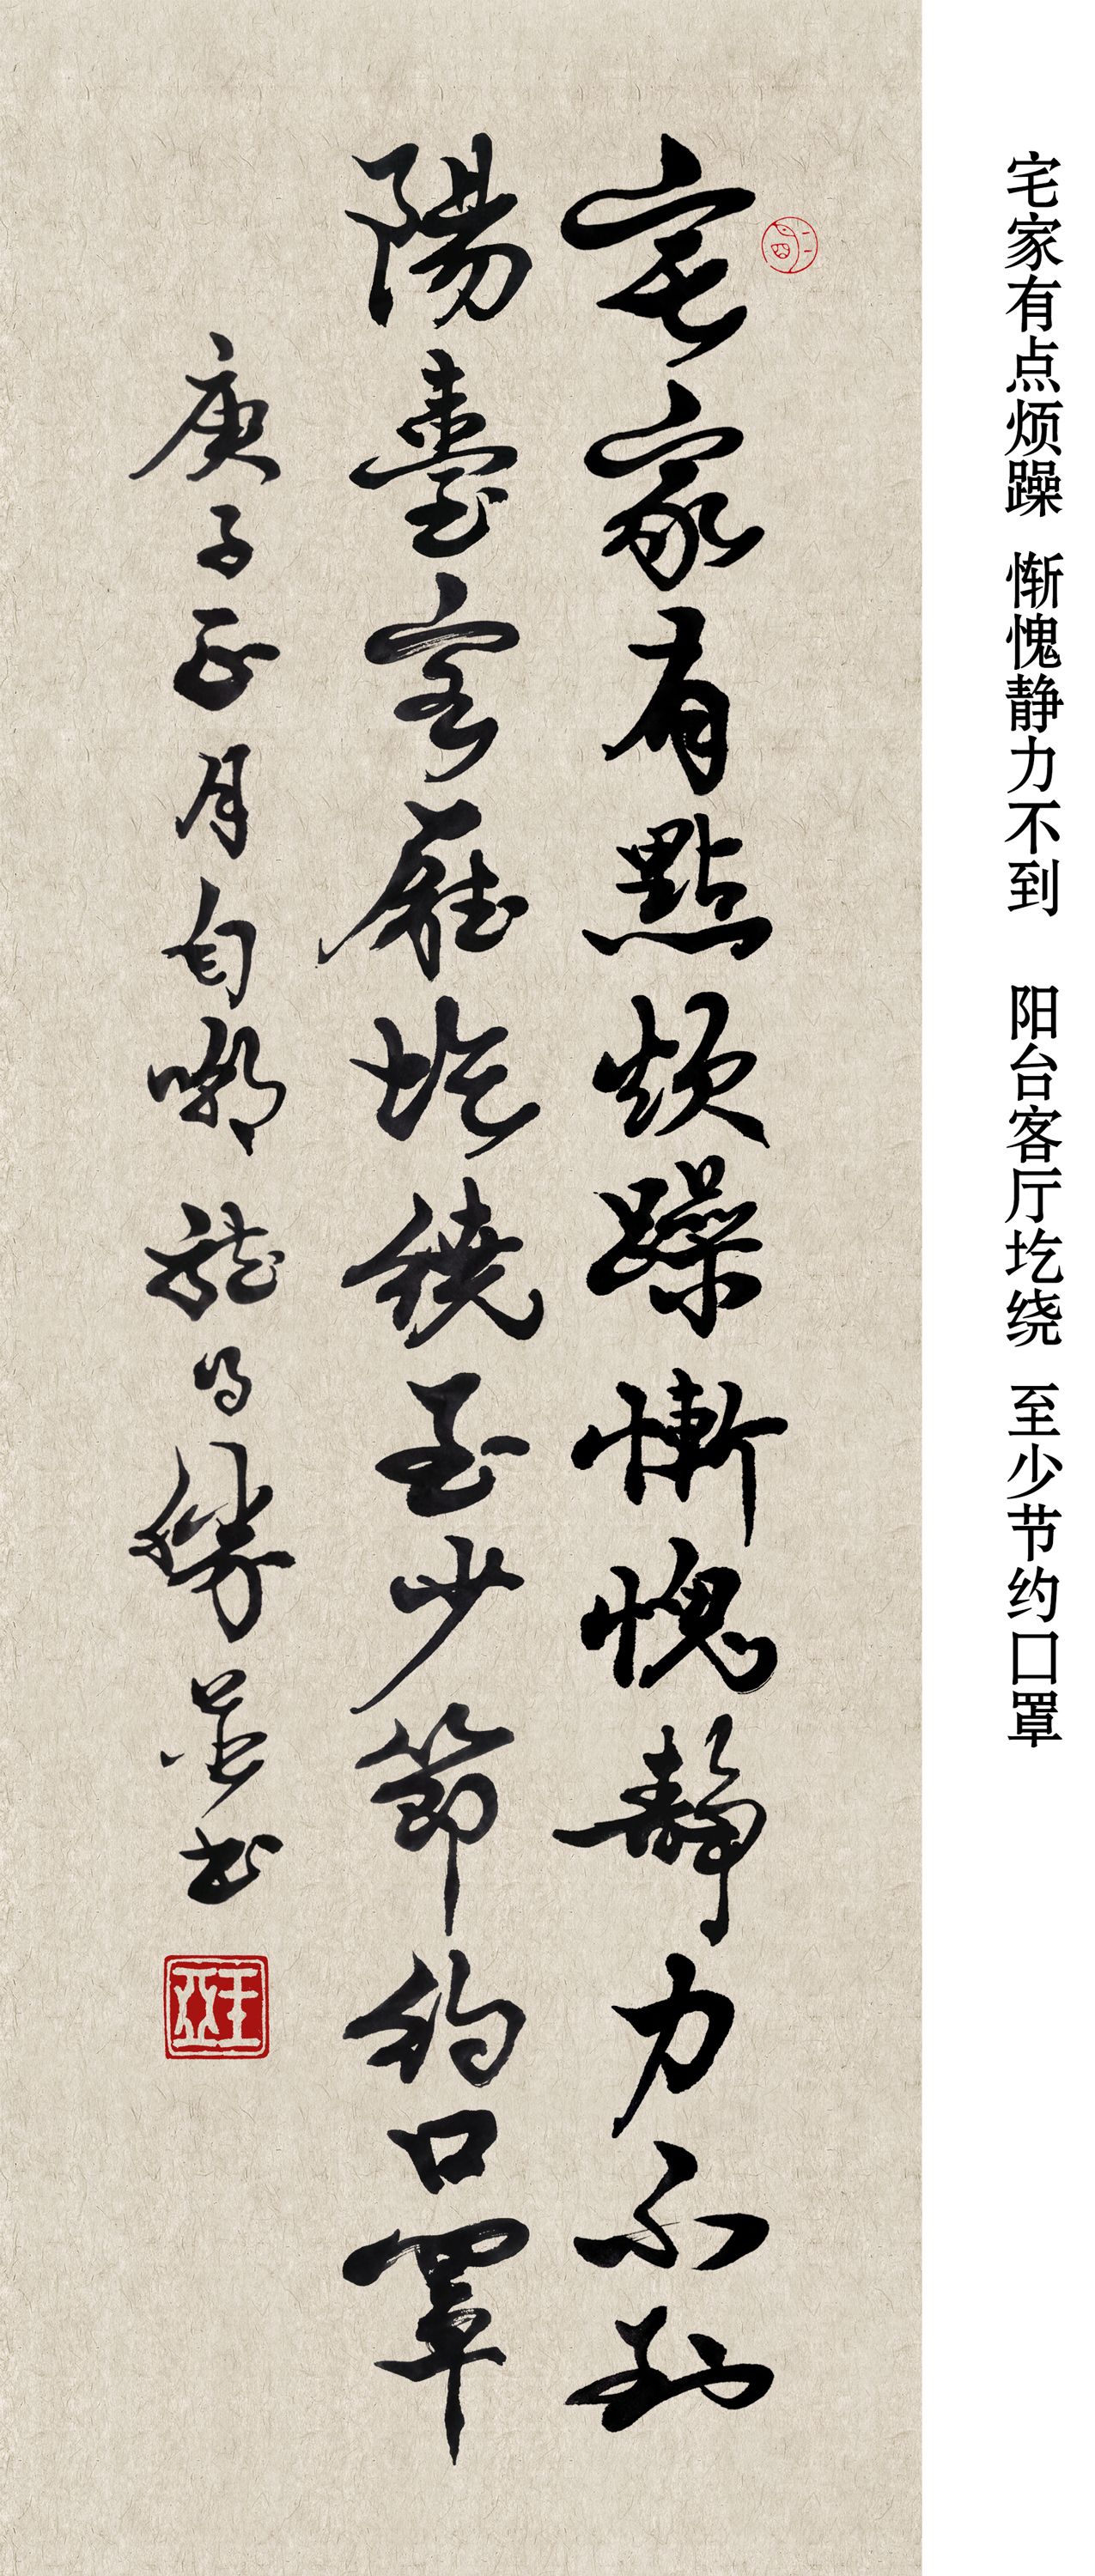 宅家有点烦躁 惭愧静力不到 阳台客厅圪绕 至少节约口罩
宅家有點煩躁慚愧靜力不到
陽臺客廳圪繞至少節約口罩
庚子正月自嘲 並书